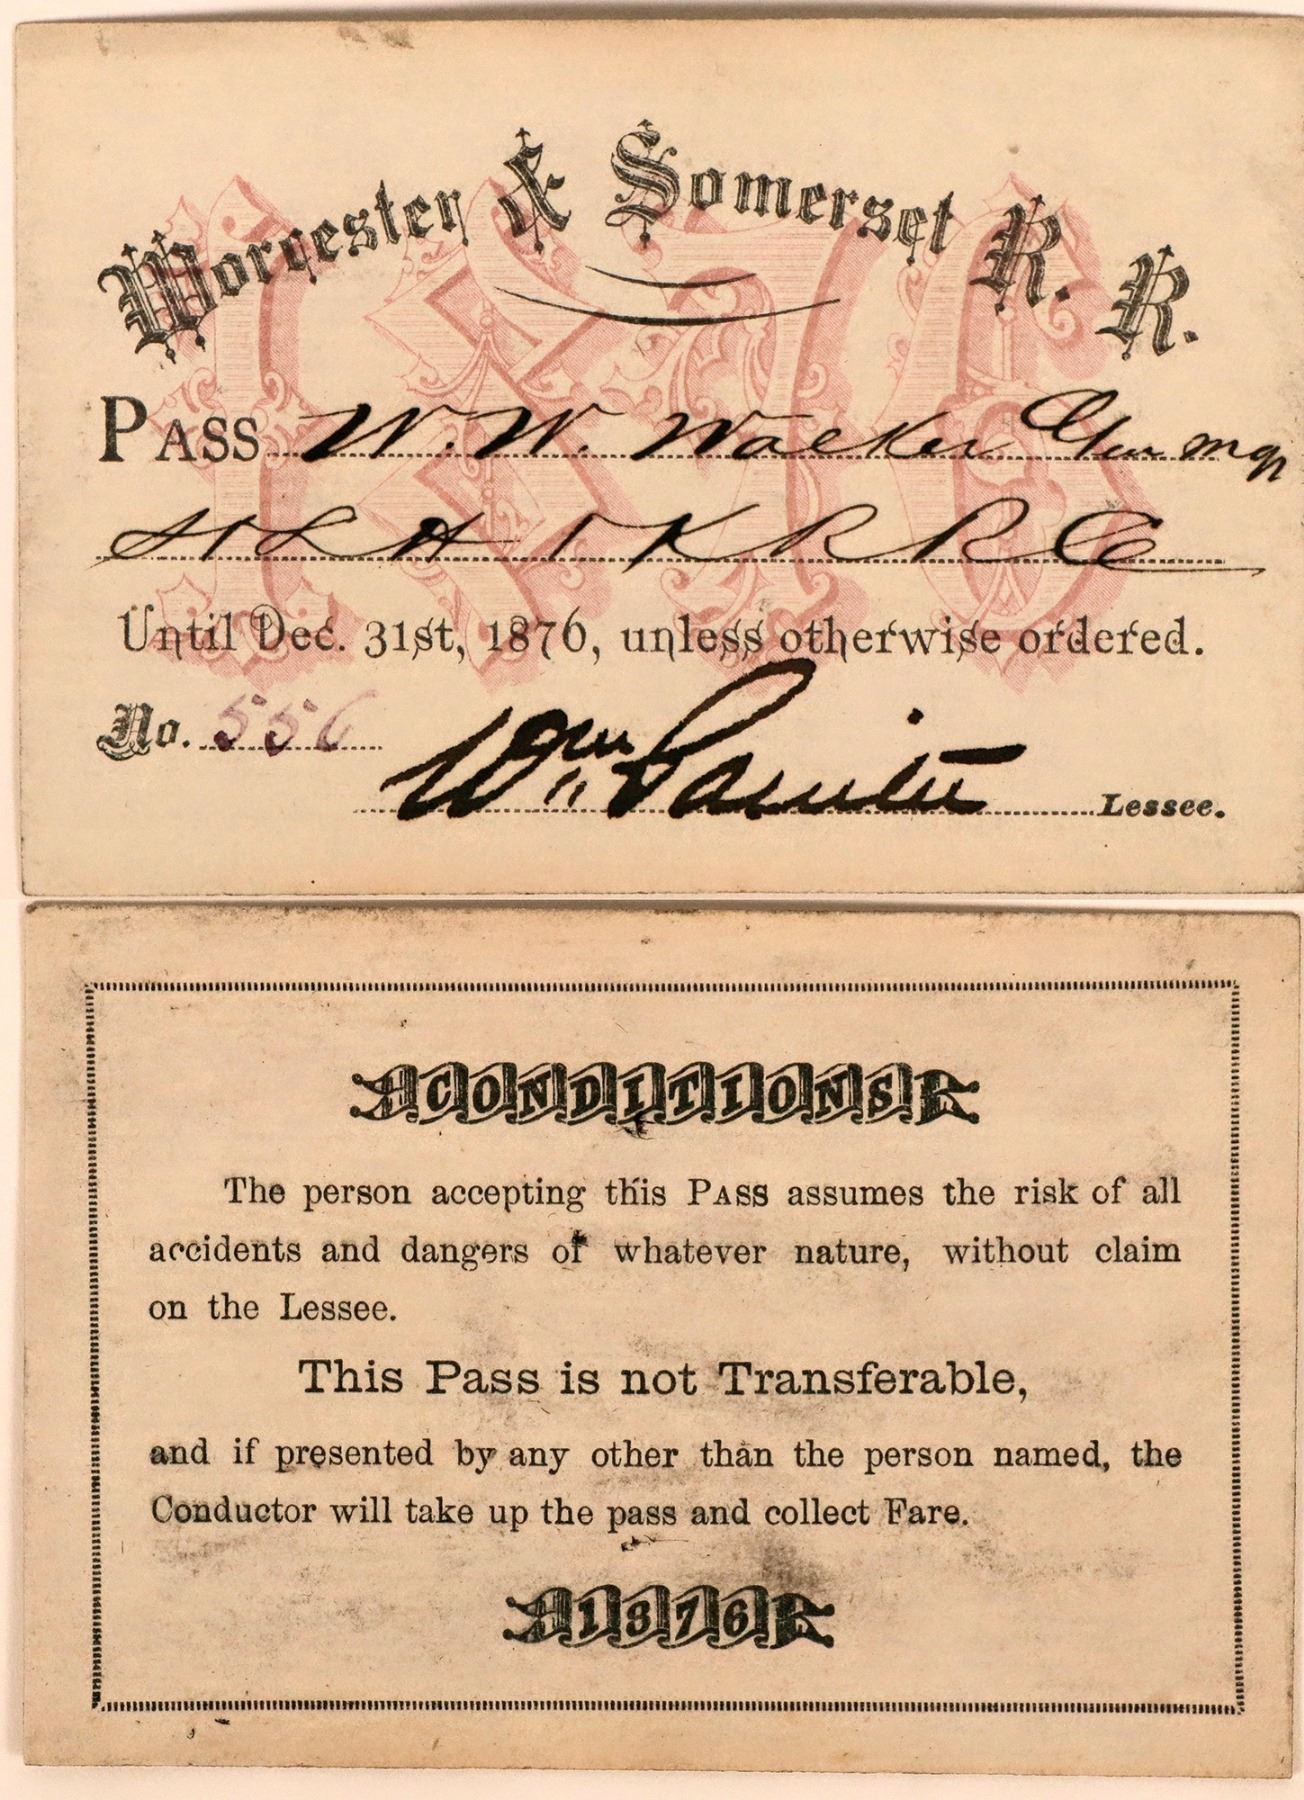 Worcester & Somerset R. R.
1876
PASS W. W. Walker Gen mgr
St L H & K R R Co
Until Dec. 31st, 1876, unless otherwise ordered.
No. 556
Wm Painter Lessee.
CONDITIONS
The person accepting this PASS assumes the risk of all
accidents and dangers of whatever nature, without claim
on the Lessee.
This Pass is not Transferable,
and if presented by any other than the person named, the
Conductor will take up the pass and collect Fare.
1876